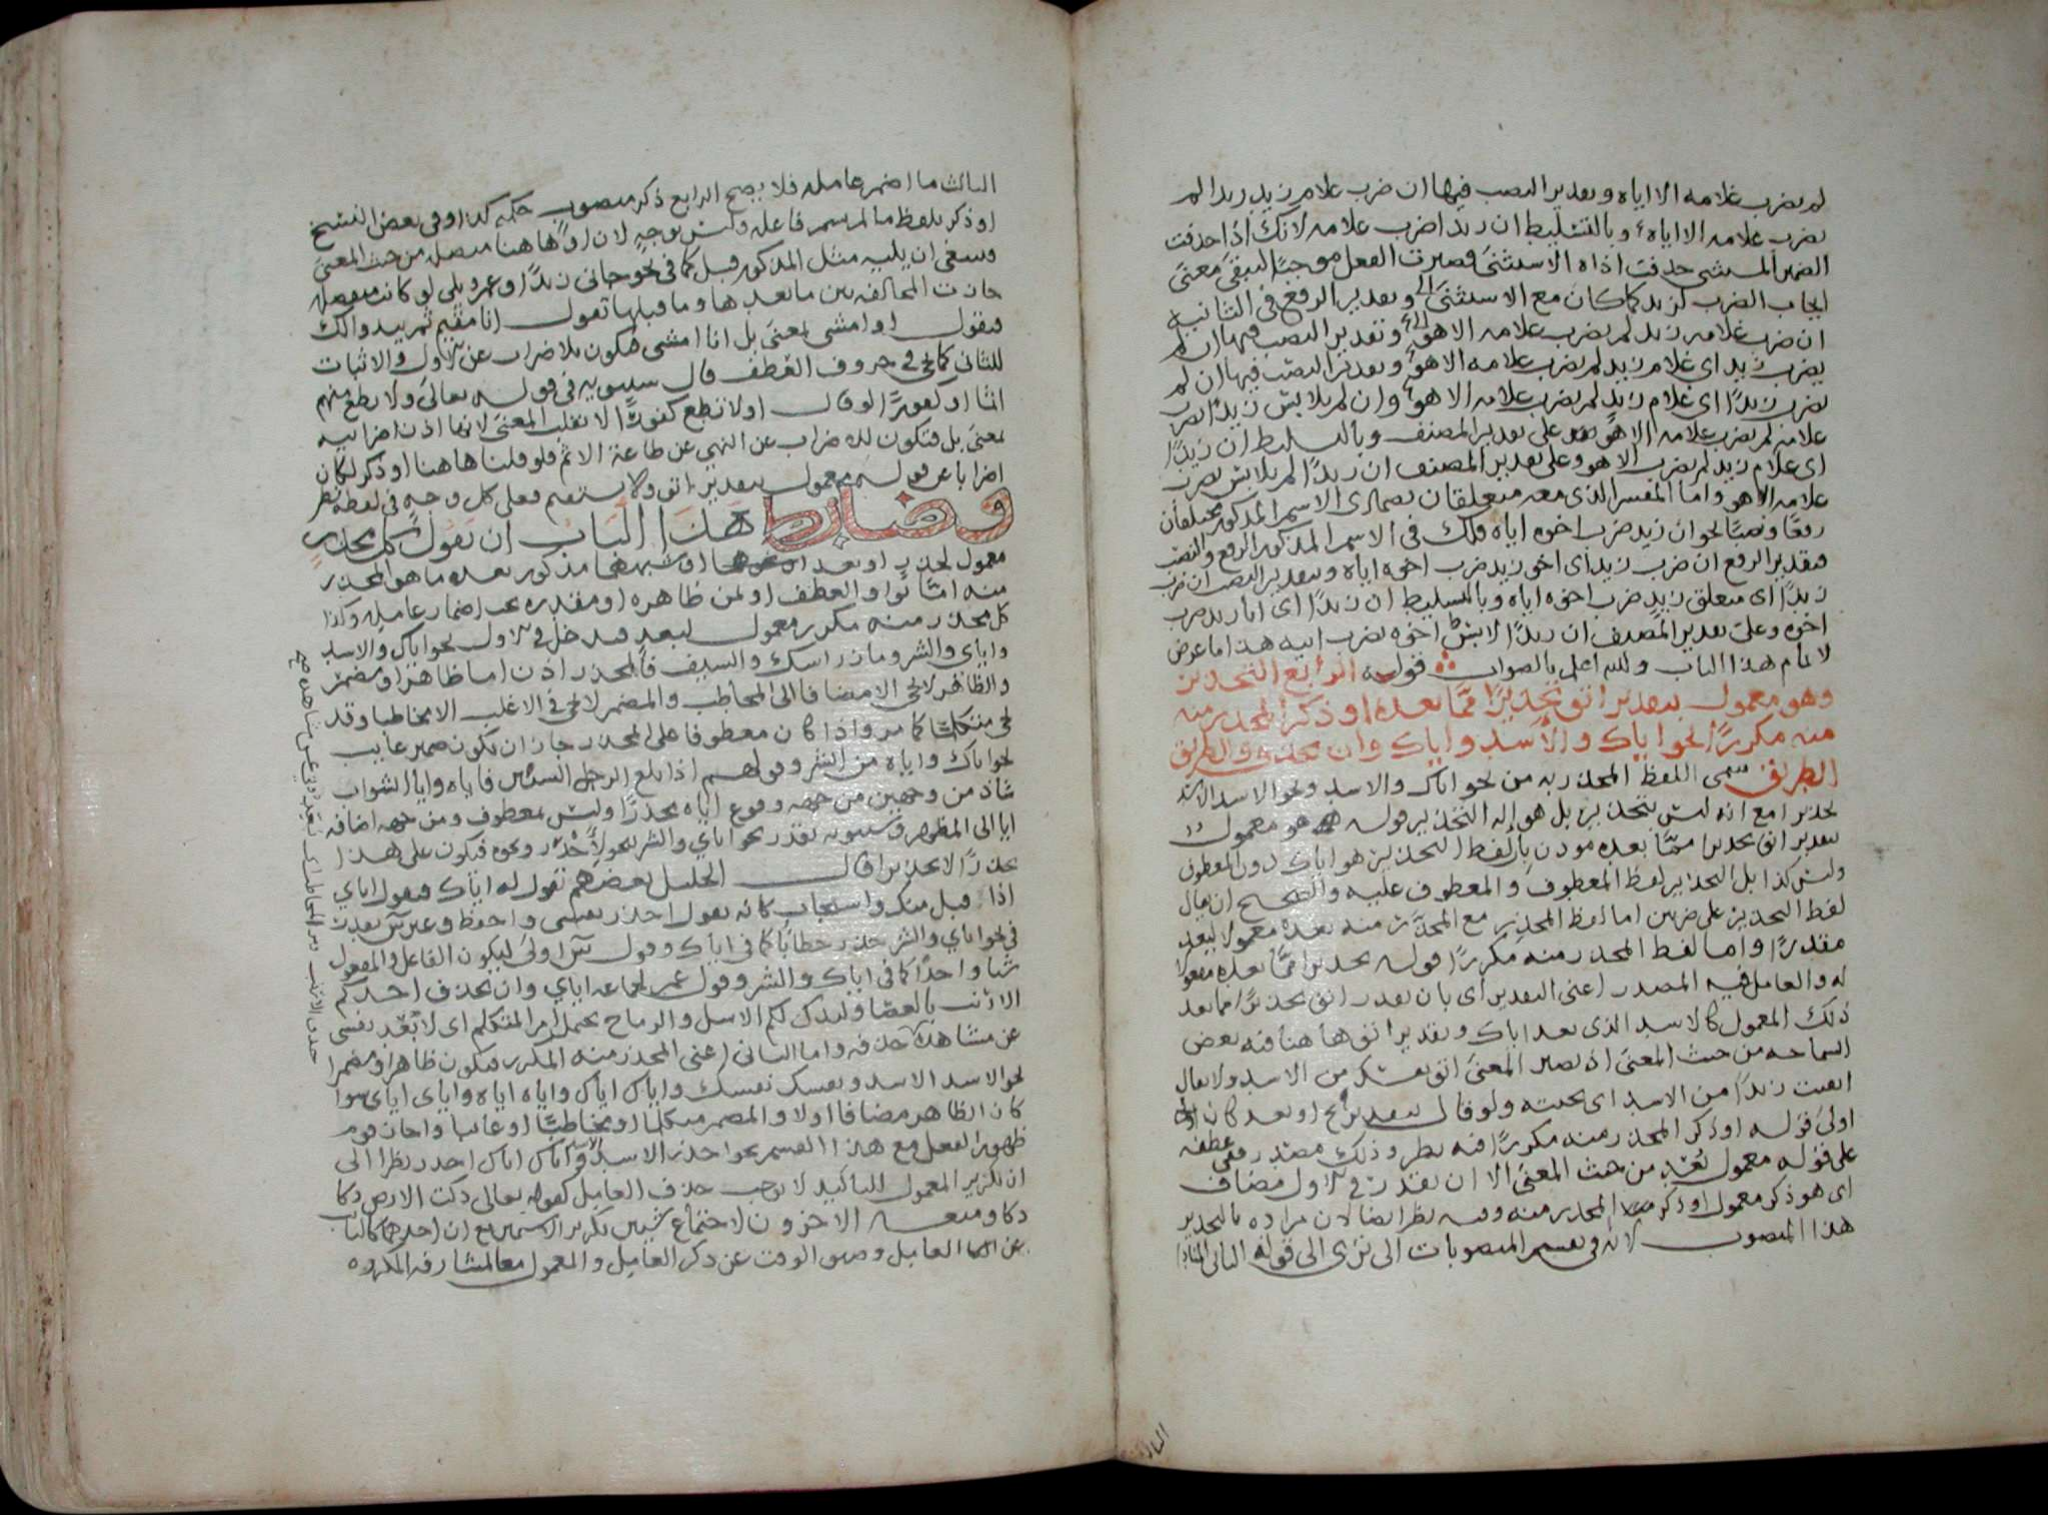 لم يضرب غلامه الا اياه وتقدير النصب فيها ان ضرب غلام زيد زيدا لم
يضرب غلامه الا اياه وبالتسليط ان زيدا ضرب غلامه لانك اذا حذفت
الضمير المستثنى حذفت اداة الاستثنا فصيرت الفعل موجبا ليبقى معنى
ايجاب الضرب لزيد كما كان مع الاستثنا وتقدير الرفع في الثانية
ان ضرب غلامه زيد لم يضرب غلامه الا هو وتقدير النصب فيها ان لم
يضرب زيد اى غلام زيد لم يضرب غلامه الا هو وتقدير النصب فيها ان لم
يضرب زيدا اى غلام زيد لم يضرب غلامه الا هو وان لم يلابس زيدا ضرب
غلامه لم يضرب غلامه الا هو على تقدير المصنف وبالتسليط ان زيدا
اى غلام زيد لم يضرب الا هو وعلى تقدير المصنف ان زيدا لم يلابس ضرب
غلامه الا هو واما المفسر الذى معه متعلقان بضميرى الاسم المذكور مختلفان
رفعا ونصبا نحو ان زيد ضرب اخوه اياه فلك في الاسم المذكور الرفع والنصب
فتقدير الرفع ان ضرب زيد اى اخو زيد ضرب اخوه اياه وتقدير النصب ان ضرب
زيدا اى متعلق زيد ضرب اخوه اياه وبالتسليط ان زيدا اى ابا زيد ضرب
اخوه وعلى تقدير المصنف ان زيدا لابس اخوه يضرب ابيه هذا ما عرض
لاتمام هذا الباب والله اعلم بالصواب قوله الرابع التحذير
وهو معمول بتقدير اتق تحذيرا مما بعده او ذكر المحذر منه
منه مكررا نحو اياك والاسد واياك وان تحذف والطريق
الطريق سمى اللفظ المحذر به من نحو اياك والاسد ونحو الاسد الاسد
تحذيرا مع انه ليس بتحذير بل هو الة التحذير قوله هو معمول
بتقدير اتق تحذيرا مما بعده موذن بان لفظ التحذير هو اياك دون المعطوف
وليس كذا بل التحذير لفظ المعطوف والمعطوف عليه والصحيح ان يقال
لفظ التحذير على ضربين اما لفظ المحذر مع المحذر منه بعده معمولا لبعد
مقدرا واما لفظ المحذر منه مكررا قوله تحذيرا مما بعده مفعولا
له والعامل فيه المصدر اعنى التقدير اى بان تقدر اتق تحذيرا مما بعد
ذلك المعمول كالاسد الذى بعد اياك وتقدير اتق هاهنا فيه بعض
السماجة من حيث المعنى اذ يصير المعنى اتق نفسك من الاسد ولا يقال
اتقيت زيدا من الاسد اى نحيته ولو قال بتقدير نح او بعد كان
اولى قوله او ذكر المحذر منه مكررا فيه نظر وذلك مصدر ففى عطفه
على قوله معمول بعد من حيث المعنى الا ان يقدر في الاول مضاف
اى هو ذكر معمول او ذكر المحذر منه وفيه نظر ايضا لان مراده بالتحذير
هذا المنصوب لانه في تقسيم المنصوبات الى ترى الى قوله الثانى المنادى
الثالث ما اضمر عامله فلا يصح الرابع ذكر منصوب حكمه كذا وفى بعض النسخ
او ذكر بلفظ ما لم يسم فاعله وليس بوجه لان او هاهنا متصلة من حيث المعنى
وينبغى ان يليه مثل المذكور قبل كما فى نحو جانى زيد او عمرو بلى لو كانت منفصلة
جازت المخالفة بين ما بعدها وما قبلها تقول انا مقيم ثم يبدو لك
فتقول او امشى بمعنى بل انا امشى فتكون للاضراب عن الاول والاثبات
للثانى كما يجى في حروف العطف قال سيبويه فى قوله تعالى ولا تطع منهم
اثما او كفورا لو قال او لا تطع كفورا لانقلب المعنى لانها اذن اضرابية
بمعنى بل فتكون للاضراب عن النهى عن طاعة الاثم فلو قلنا هاهنا او ذكر لكان
اضرابا عن قوله معمول بتقدير اتق ولا يستقيم فعلى كل وجه فى لفظه نظر
وضابط هذا الباب ان تقول كل محذر
معمول لحذر او بعد او شبههما مذكور بعده ما هو المحذر
منه اما بواو العطف او بمن ظاهرة او مقدرة يجب اضمار عامله وكذا
كل محذر منه مكرر معمول لبعد فدخل فى الاول نحو اياك والاسد
واياى والشر وماز راسك والسيف فالمحذر اذن اما ظاهر او مضمر
والظاهر لا يجى الا مضافا الى المخاطب والمضمر لا يجى فى الاغلب الا مخاطبا وقد
يجى متكلما كما مر واذا كان معطوفا على المحذر جاز ان يكون ضمير غايب
نحو اياك واياه من الشر وقولهم اذا بلغ الرجل الستين فاياه وايا الشواب
شاذ من وجهين من جهة وقوع اياه محذرا وليس بمعطوف ومن جهة اضافة
ايا الى المظهر وسيبويه يقدر نحو اياى والشر بنحو لاحذر ونحوه فيكون على هذا
تحذيرا قال الخليل بعضهم تقول له اياك فيقول اياى
اذا قبل منك واستجاب كانه يقول احذر نفسى واحفظ وغير س يقدر
فى نحو اياى والشر حذر خطابا كما فى اياك وقول س اولى ليكون الفاعل والمفعول
شيا واحدا كما فى اياك والشر وقول عمر لجماعة اياى وان يحذف احدكم
الارنب بالعصا وليذك لكم الاسل والرماح يحتمل امر المتكلم اى لابعد نفسى
عن مشاهدة حذفه واما الثانى اعنى المحذر منه المكرر فيكون ظاهرا ومضمرا
نحو الاسد الاسد ونفسك نفسك واياك اياك واياه اياه واياى اياى سوا
كان الظاهر مضافا اولا والمضمر متكلما او مخاطبا او غائبا واجاز قوم
ظهور الفعل مع هذا القسم نحو احذر الاسد الاسد واياك اياك احذر نظرا الى
ان تكرير المعمول للتاكيد لا يوجب حذف العامل كقوله تعالى دكت الارض دكا
دكا ومنعه الاخرون لاجتماع شيين تكرير الاسمين مع ان احدهما كالنايب
عن العامل وضيق الوقت عن ذكر العامل والمعمول معا لمشارفة المكروه